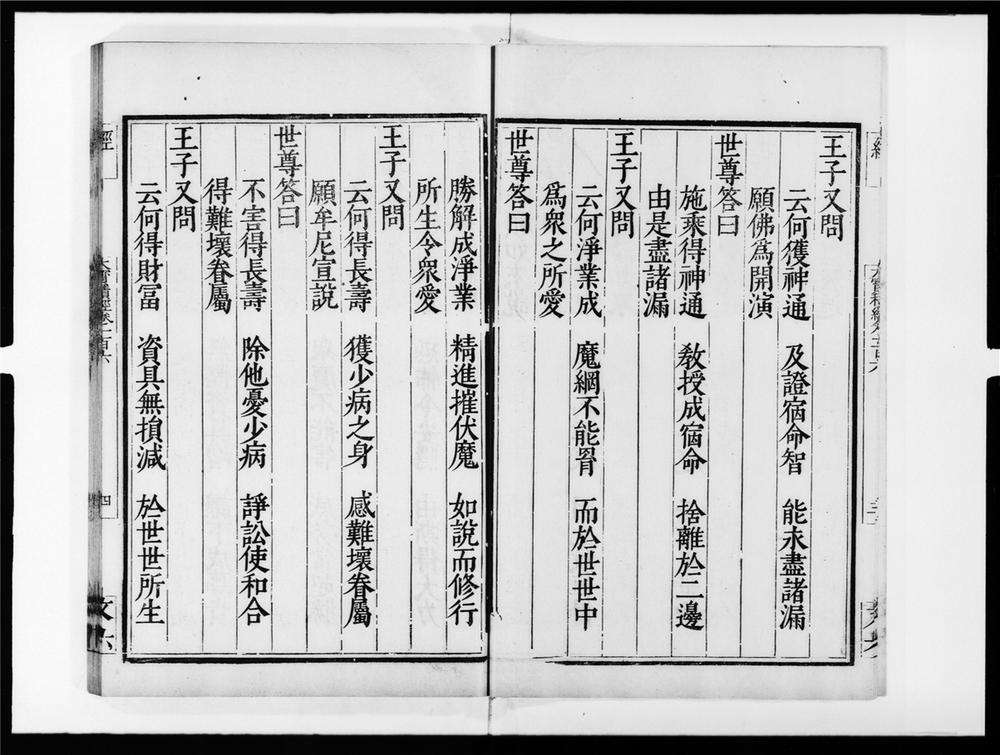 王子又問
云何獲神通　及證宿命智　能永盡諸漏
願佛爲開演
世尊答曰
施乘得神通　敎授成宿命　捨離於二邊
由是盡諸漏
王子又問
云何淨業成　魔網不能罥　而於世世中
爲衆之所愛
世尊答曰
勝解成淨業　精進摧伏魔　如說而修行
所生令衆愛
王子又問
云何得長壽　獲少病之身　感難壞眷屬
願牟尼宣說
世尊答曰
不害得長壽　除他憂少病　諍訟使和合
得難壞眷屬
王子又問
云何得財富　資具無損減　於世世所生
經
大寶積經卷一百六
四
文六